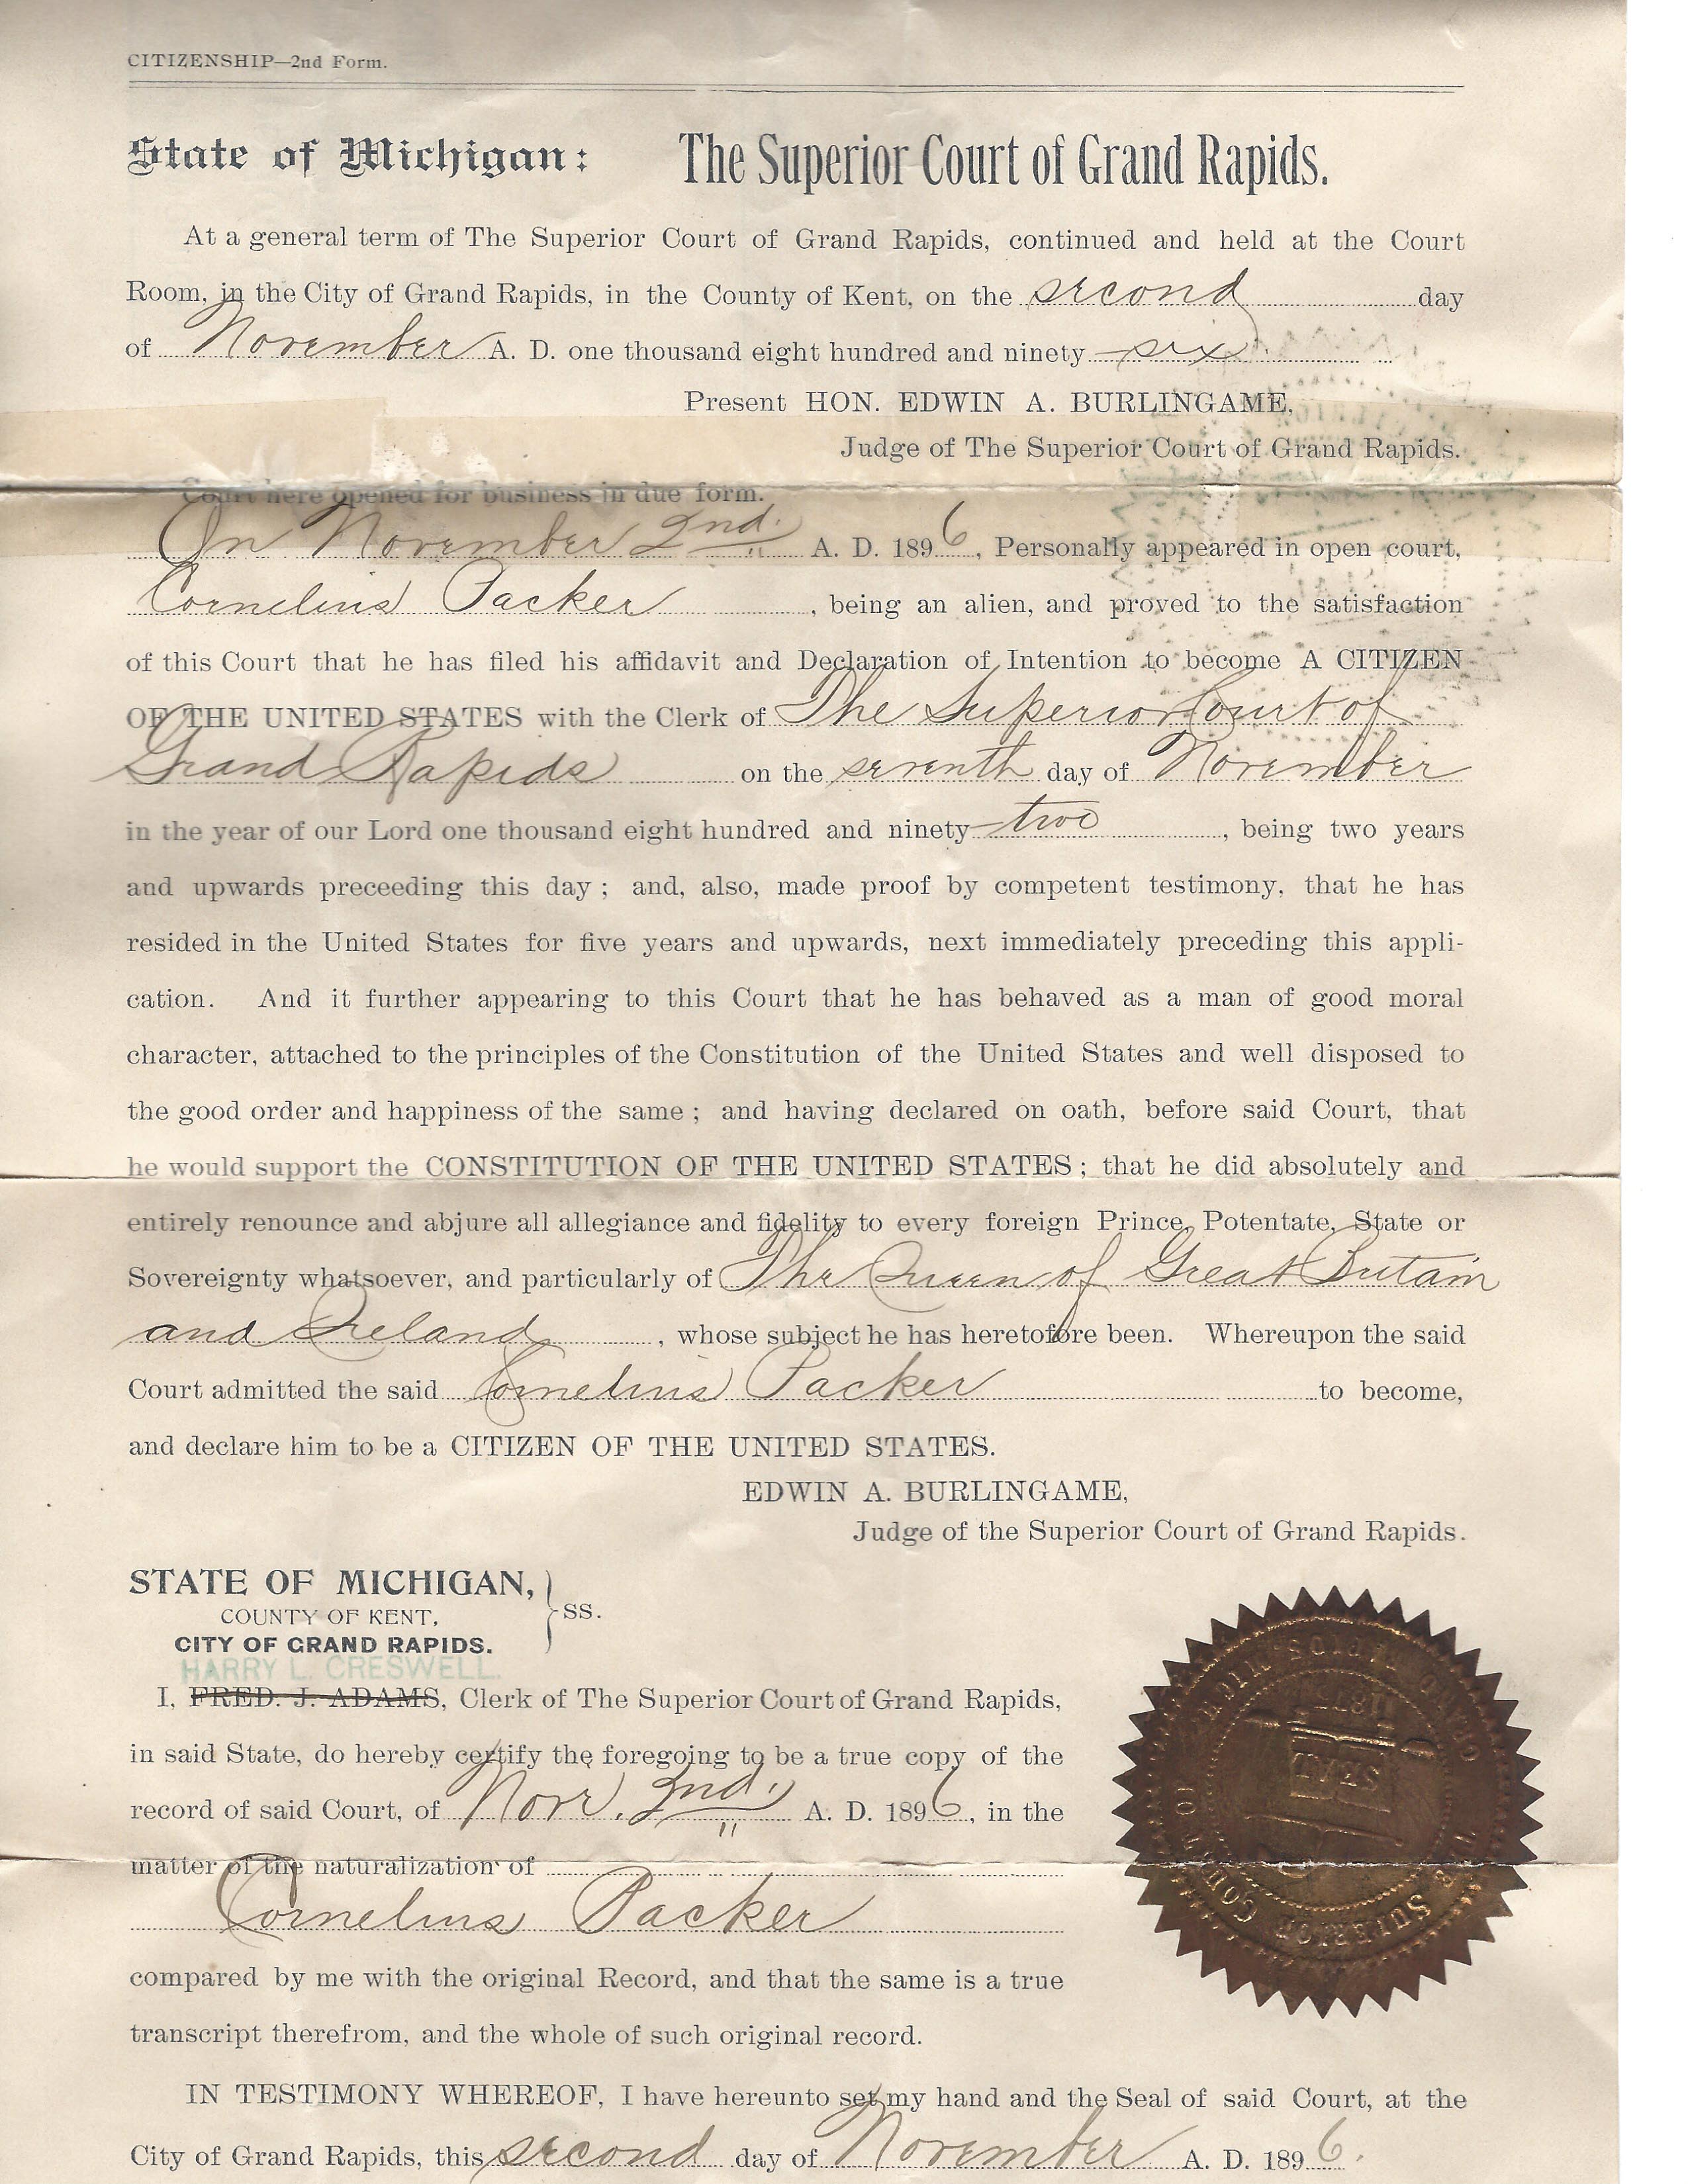 CITIZENSHIP—2nd Form.
State of Michigan: The Superior Court of Grand Rapids.
At a general term of The Superior Court of Grand Rapids, continued and held at the Court
Room, in the City of Grand Rapids, in the County of Kent, on the second day
of November A. D. one thousand eight hundred and ninety six
Present HON. EDWIN A. BURLINGAME,
Judge of The Superior Court of Grand Rapids.
Court here opened for business in due form.
On November 2nd. A. D. 1896, Personally appeared in open court,
Cornelius Packer, being an alien, and proved to the satisfaction
of this Court that he has filed his affidavit and Declaration of Intention to become A CITIZEN
OF THE UNITED STATES with the Clerk of The Superior Court of
Grand Rapids on the seventh day of November
in the year of our Lord one thousand eight hundred and ninety two, being two years
and upwards preceeding this day; and, also, made proof by competent testimony, that he has
resided in the United States for five years and upwards, next immediately preceding this appli-
cation. And it further appearing to this Court that he has behaved as a man of good moral
character, attached to the principles of the Constitution of the United States and well disposed to
the good order and happiness of the same; and having declared on oath, before said Court, that
he would support the CONSTITUTION OF THE UNITED STATES; that he did absolutely and
entirely renounce and abjure all allegiance and fidelity to every foreign Prince, Potentate, State or
Sovereignty whatsoever, and particularly of The Queen of Great Britain
and Ireland, whose subject he has heretofore been. Whereupon the said
Court admitted the said Cornelius Packer to become,
and declare him to be a CITIZEN OF THE UNITED STATES.
EDWIN A. BURLINGAME,
Judge of the Superior Court of Grand Rapids.
STATE OF MICHIGAN,
COUNTY OF KENT, SS.
CITY OF GRAND RAPIDS.
HARRY L. CRESWELL.
I, FRED. J. ADAMS, Clerk of The Superior Court of Grand Rapids,
in said State, do hereby certify the foregoing to be a true copy of the
record of said Court, of Nov. 2nd. A. D. 1896, in the
matter of the naturalization of
Cornelius Packer
compared by me with the original Record, and that the same is a true
transcript therefrom, and the whole of such original record.
SEAL
IN TESTIMONY WHEREOF, I have hereunto set my hand and the Seal of said Court, at the
City of Grand Rapids, this second day of November A. D. 1896.